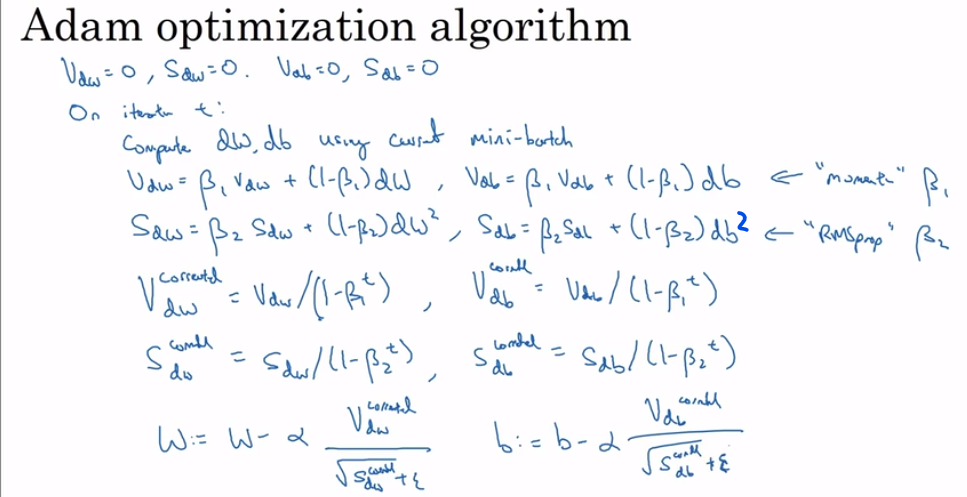 Adam optimization algorithm
V_dw = 0, S_dw = 0. V_db = 0, S_db = 0
On iteration t:
Compute dW, db using current mini-batch
V_dw = β₁ V_dw + (1-β₁) dW , V_db = β₁ V_db + (1-β₁) db ← "momentum" β₁
S_dw = β₂ S_dw + (1-β₂) dW² , S_db = β₂ S_db + (1-β₂) db² ← "RMSprop" β₂
V_dw^corrected = V_dw / (1-β₁^t) , V_db^corrected = V_db / (1-β₁^t)
S_dw^corrected = S_dw / (1-β₂^t) , S_db^corrected = S_db / (1-β₂^t)
W := W - α V_dw^corrected / √S_dw^corrected + ε b := b - α V_db^corrected / √S_db^corrected + ε